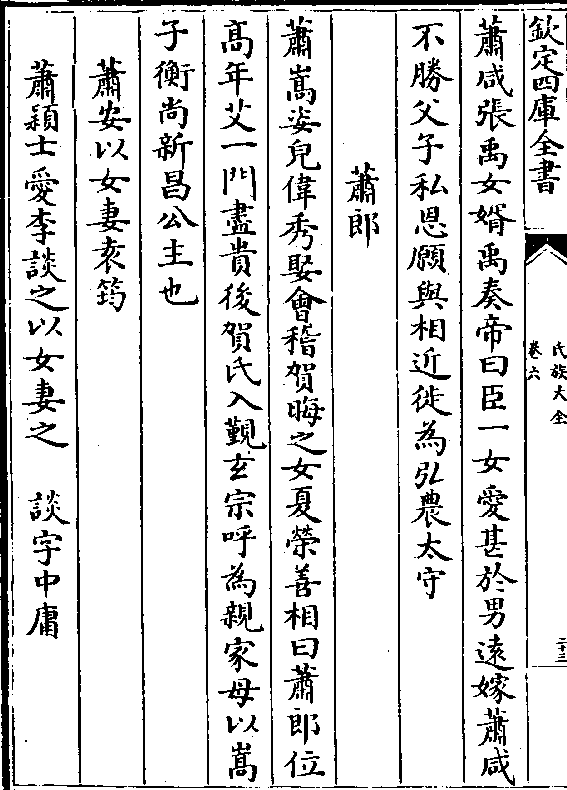 欽定四庫全書
氏族大全
卷六
二十三
蕭咸張禹女婿禹奏帝曰臣一女愛甚於男逺嫁蕭咸
不勝父子私恩願與相近徙為弘農太守
蕭郎
蕭嵩姿皃偉秀娶會稽賀晦之女夏榮善相曰蕭郎位
髙年艾一門盡貴後賀氏入覲𤣥宗呼為親家母以嵩
子衡尚新昌公主也
蕭安以女妻袁筠
蕭頴士愛李談之以女妻之　談字中庸